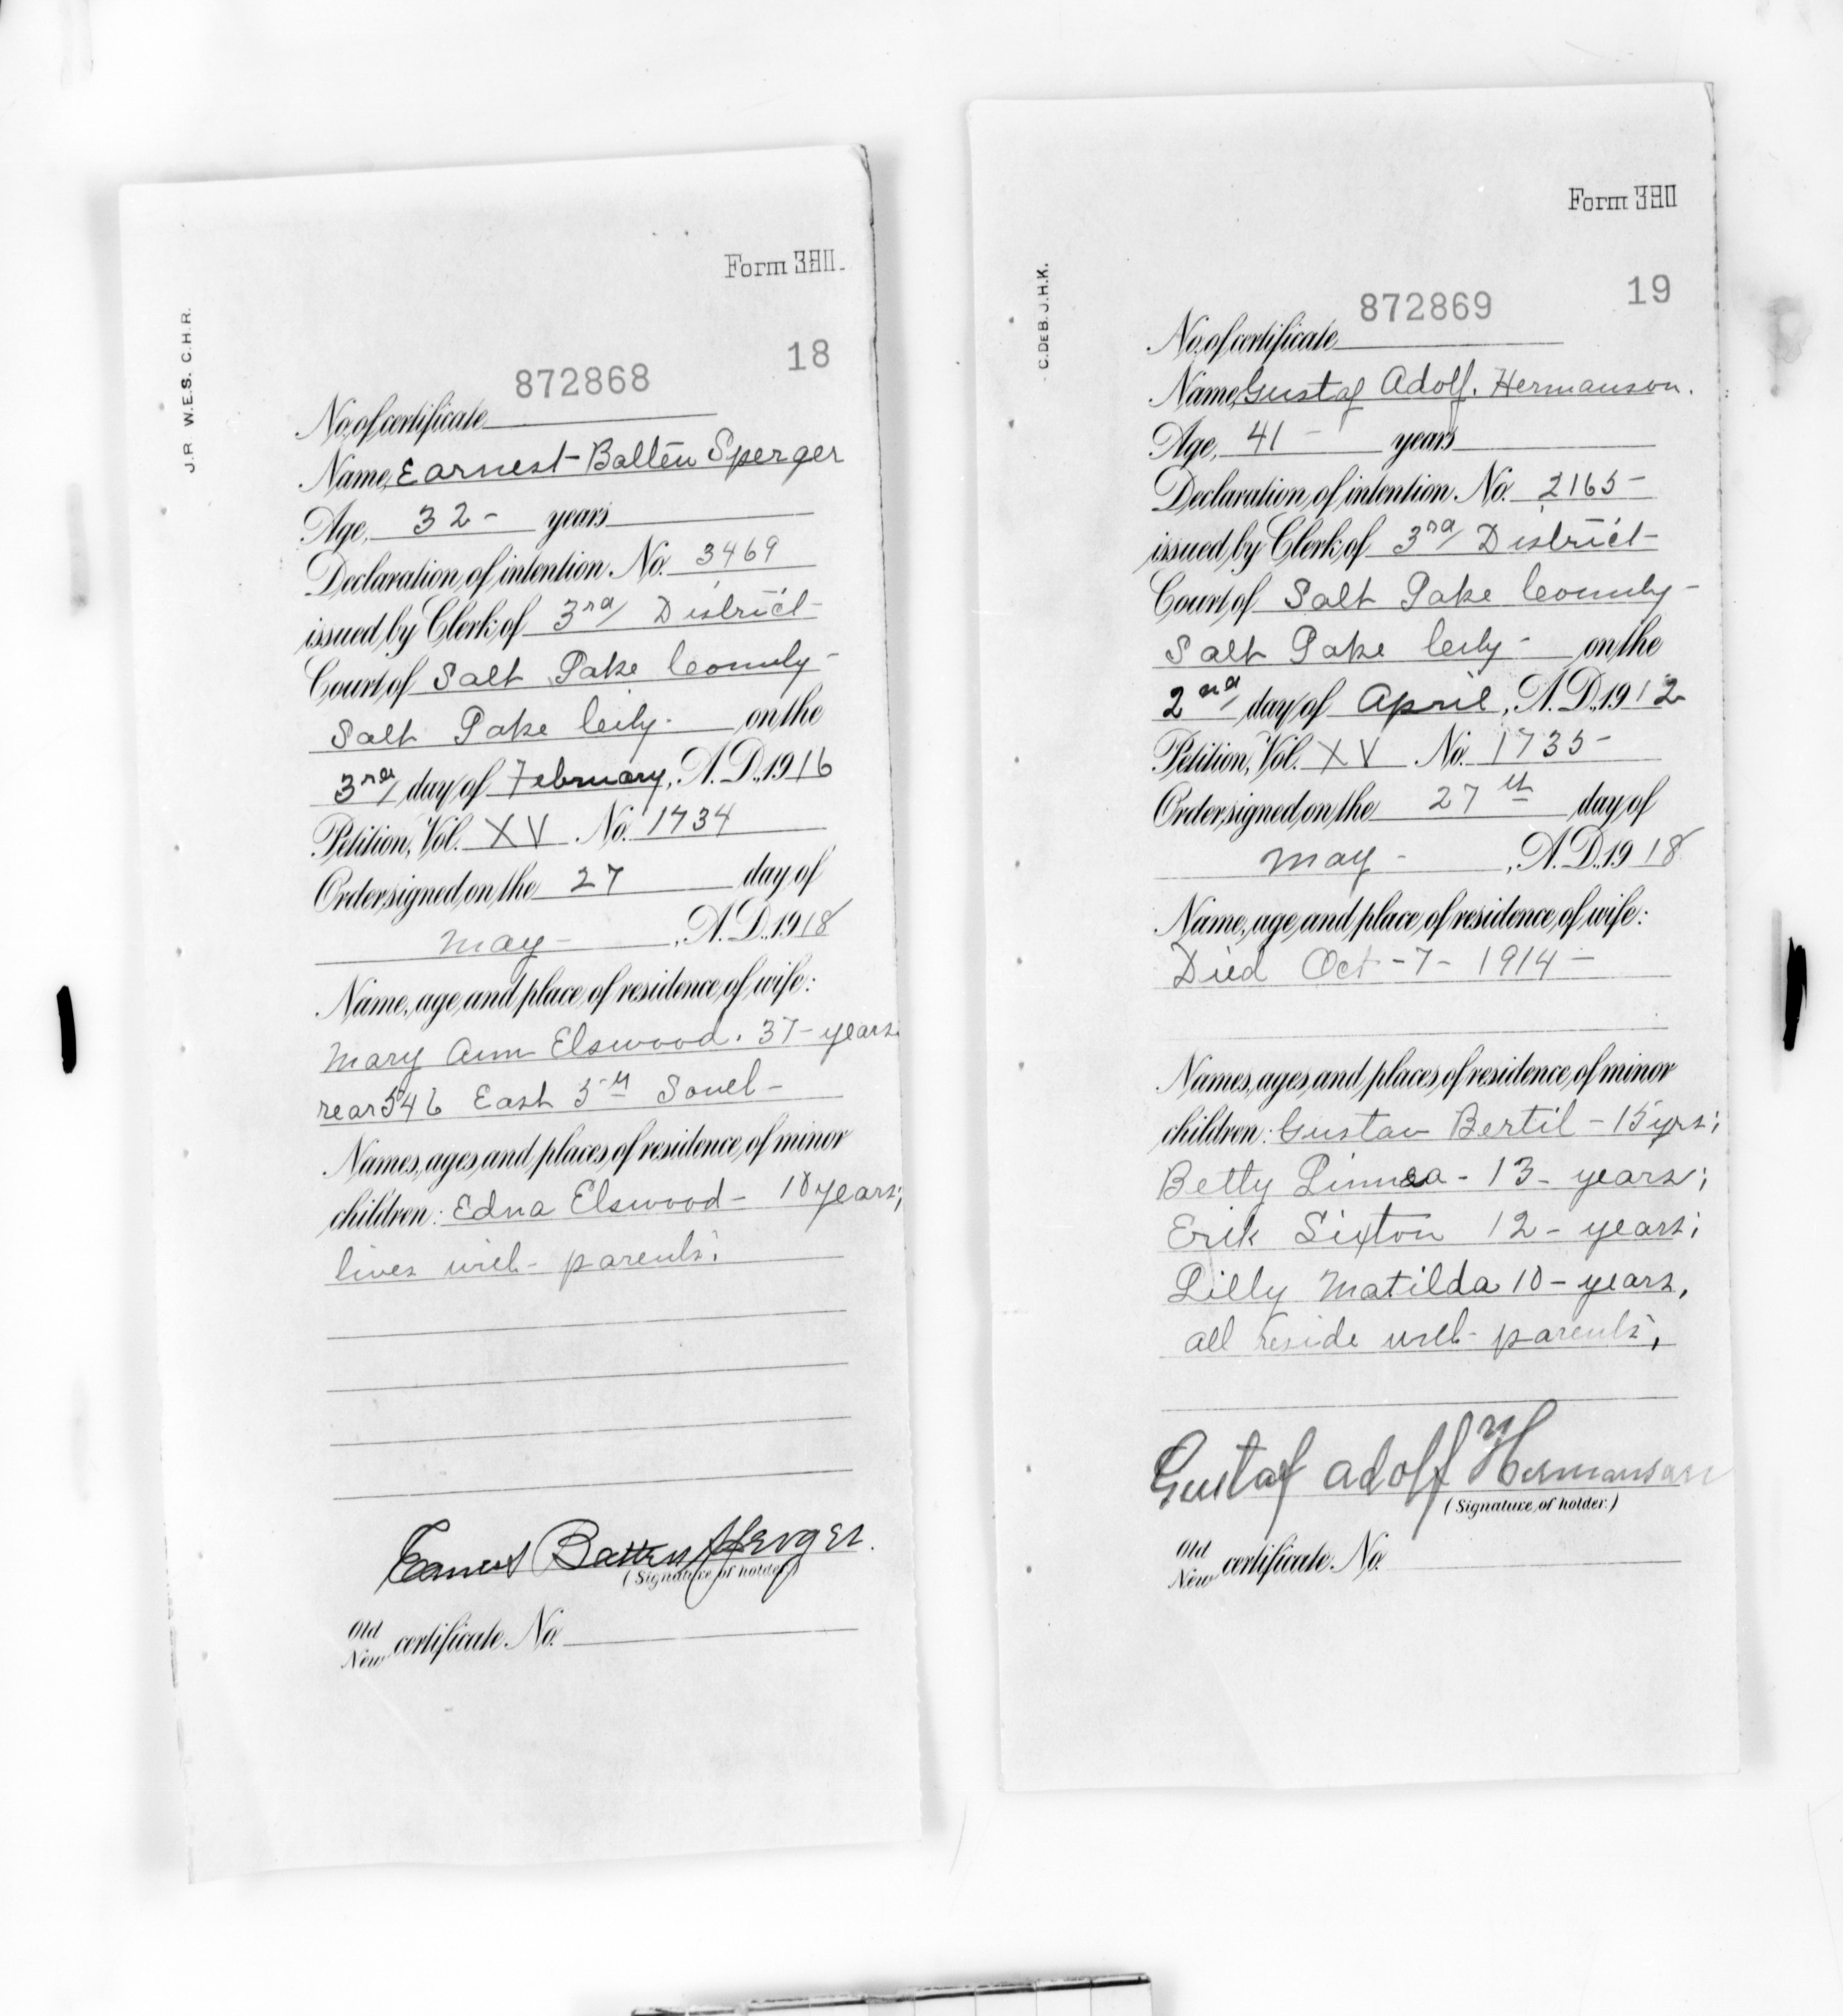 J.P. W.E.S. C.H.R.
Form 380.
872868 18
No. of certificate
Name, Earnest Batten Sperger
Age, 32 - years
Declaration of intention No. 3469
issued by Clerk of 3rd District
Court of Salt Lake County
Salt Lake City - on the
3rd day of February, A.D. 1916
Petition, Vol. XV No. 1734
Order signed on the 27 day of
May - , A.D. 1918
Name, age, and place of residence of wife:
Mary Ann Elswood. 37 - years
rear 546 East 5th South
Names, ages, and places of residence of minor
children: Edna Elswood - 10 years;
lives with parents;
Earnest Batten Sperger.
(Signature of holder)
Old
New certificate No.
C.DEB. J.H.K.
Form 380
872869 19
No. of certificate
Name, Gustaf Adolf. Hermanson.
Age, 41 - years
Declaration of intention No. 2165 -
issued by Clerk of 3rd District
Court of Salt Lake County -
Salt Lake City - on the
2nd day of April, A.D. 1912
Petition, Vol. XV No. 1735 -
Order signed on the 27th day of
May - , A.D. 1918
Name, age, and place of residence of wife:
Died Oct - 7 - 1914 -
Names, ages, and places of residence of minor
children: Gustav Bertil - 15 yrs;
Betty Linnea - 13 - years;
Erik Sixton 12 - years;
Lilly Matilda 10 - years,
all reside with parents,
Gustaf Adolf Hermanson
(Signature of holder.)
Old
New certificate No.